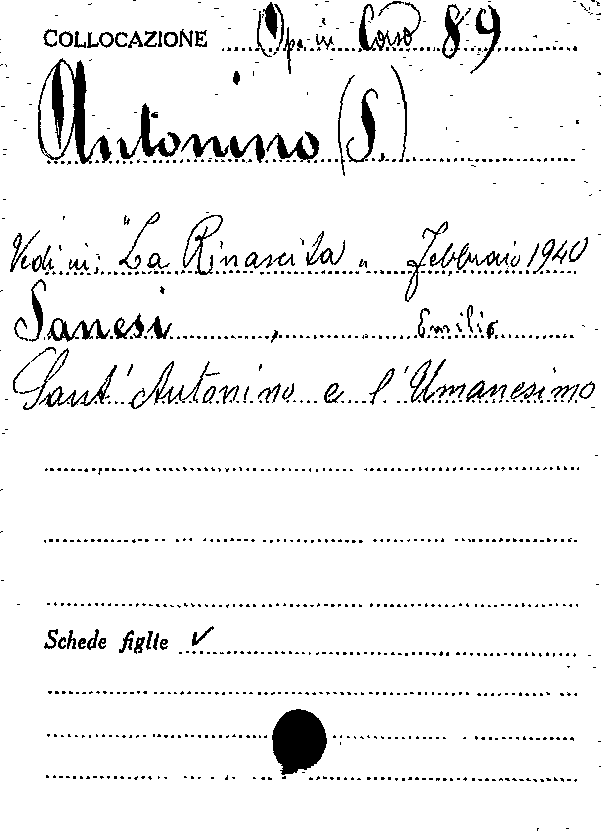 COLLOCAZIONE Ope in Corso 89
Antonino (S.)
Vedi in: "La Rinascita" Febbraio 1940
Sanesi, Emilio
Sant'Antonino e l'Umanesimo
Schede figlie ✓